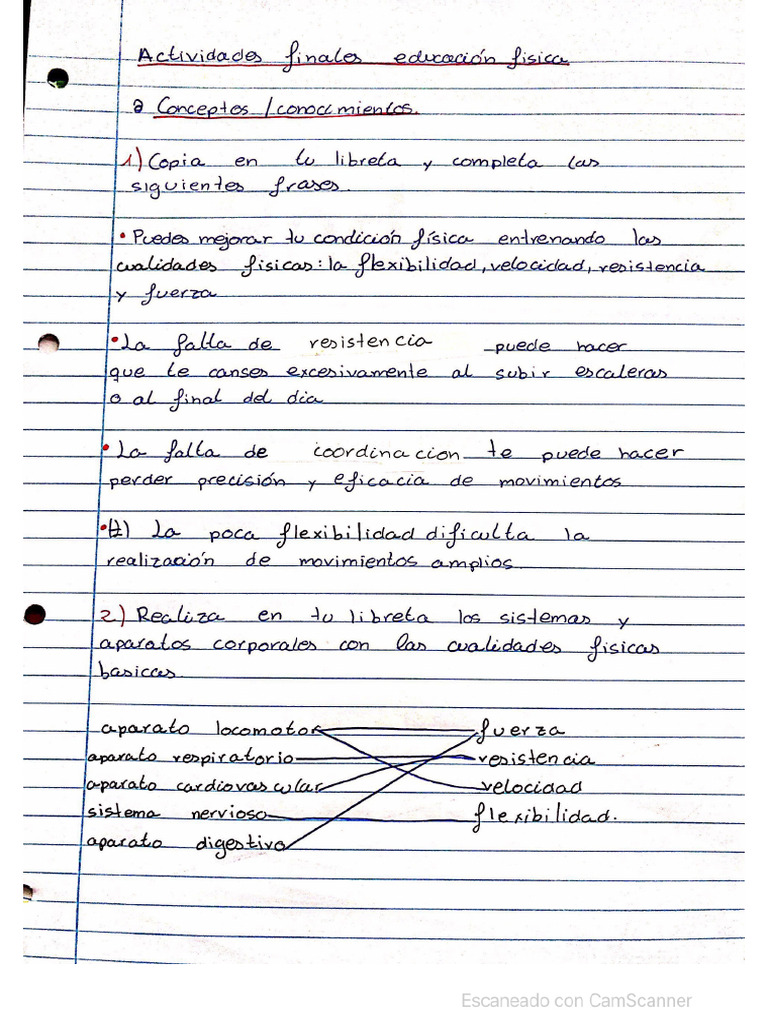 Actividades finales educación fisica
a Conceptos / conocimientos.
1) Copia en tu libreta y completa las
siguientes frases.
• Puedes mejorar tu condición física entrenando las
cualidades fisicas: la flexibilidad, velocidad, resistencia
y fuerza
• La falta de resistencia puede hacer
que te canses excesivamente al subir escaleras
o al final del dia
• La falta de coordinacion te puede hacer
perder precisión y eficacia de movimientos
• La poca flexibilidad dificulta la
realización de movimientos amplios
2) Realiza en tu libreta los sistemas y
aparatos corporales con las cualidades fisicas
basicas.
aparato locomotor fuerza
aparato respiratorio resistencia
aparato cardiovascular velocidad
sistema nervioso flexibilidad.
aparato digestivo
Escaneado con CamScanner